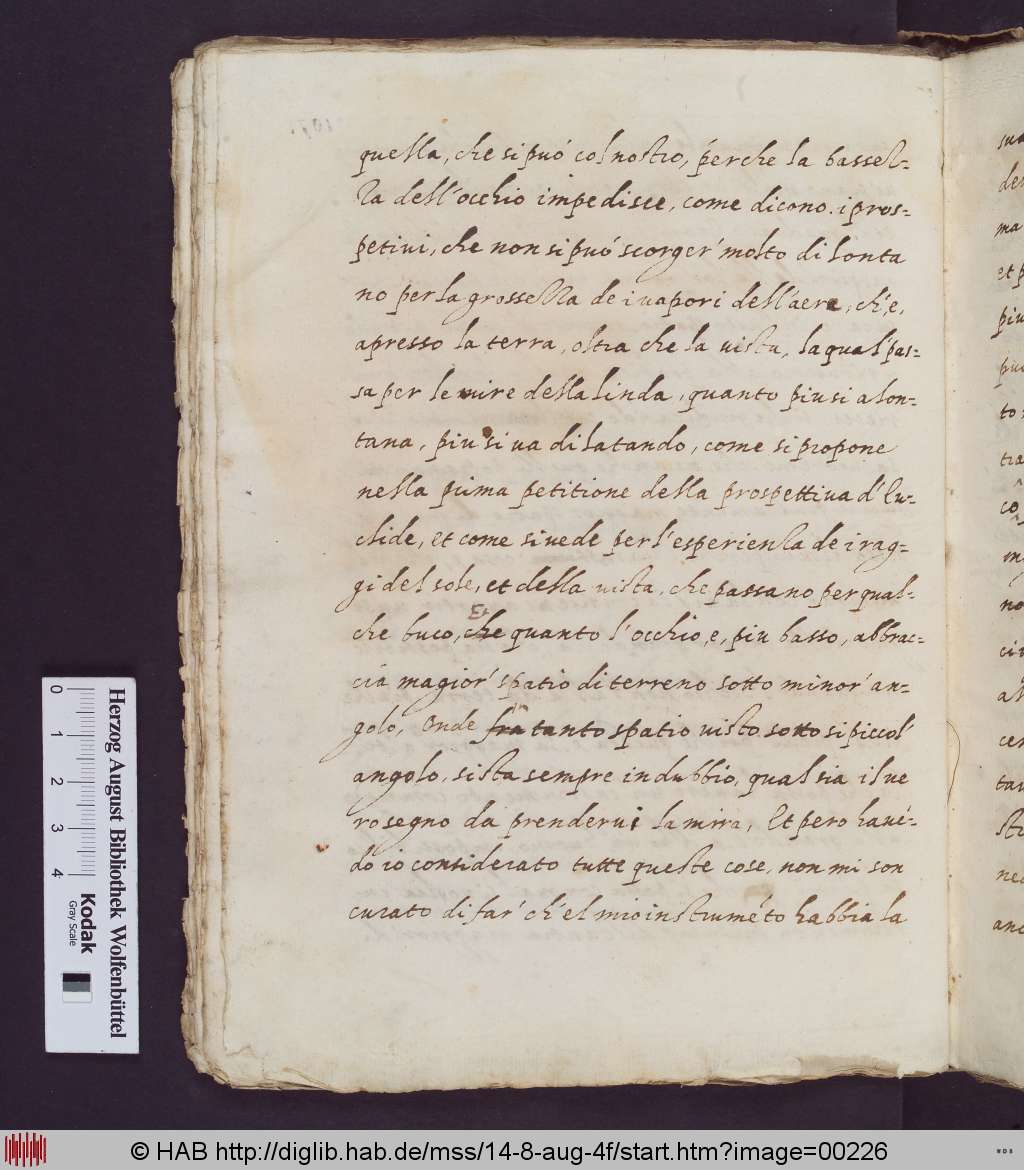 quella, che si può col nostro, perche la bassez-
za dell'occhio impedisce, come dicono. i pros=
petivi, che non si può scorger' molto di lonta
no per la grossezza de i vapori dell'aere, ch'è,
apresso la terra, oltra che la vista, la qual pas=
sa per le mire della linda, quanto piu si alon-
tana, piu si va dilatando, come si propone
nella prima petitione della prospettiva d'Eu-
clide, et come si vede per l'esperienza de i rag-
gi del sole, et della vista, che passano per qual-
Et
che buco, che quanto l'occhio, e, piu basso, abbrac-
cia magior' spatio di terreno sotto minor' an-
golo, Onde fra tanto spatio visto sotto si piccol'
angolo, si sta sempre in dubbio, qual sia il ve
ro segno da prendervi la mira, Et pero havē-
do io considerato tutte queste cose, non mi son
curato di far' ch'el mio instrumēto habbia la
0 1 2 3 4
Herzog August Bibliothek Wolfenbüttel
Kodak
Gray Scale
piu
to
no
a
© HAB http://diglib.hab.de/mss/14-8-aug-4f/start.htm?image=00226